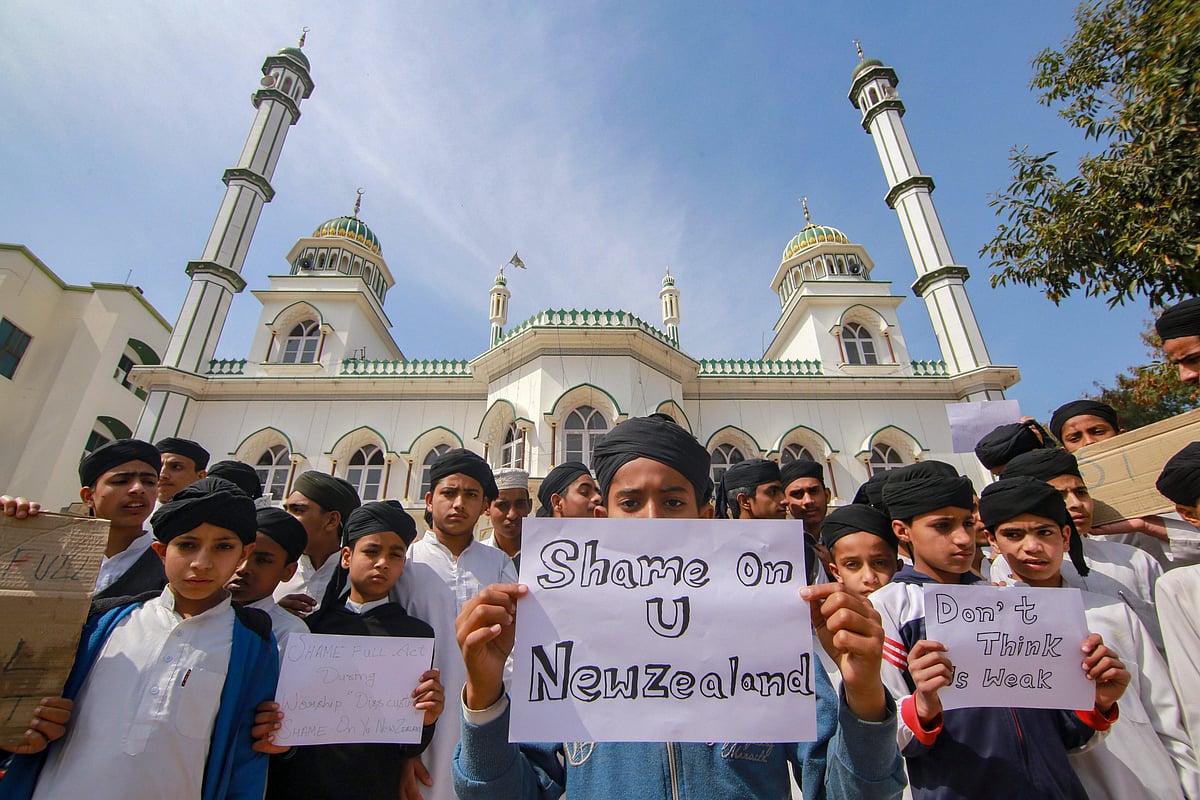 FULL
SHAMEFULL Act
During
Worship "Discusting"
SHAME On Yo NEWZEALAND
Shame On
U
Newzealand
Don't
Think
Us Weak